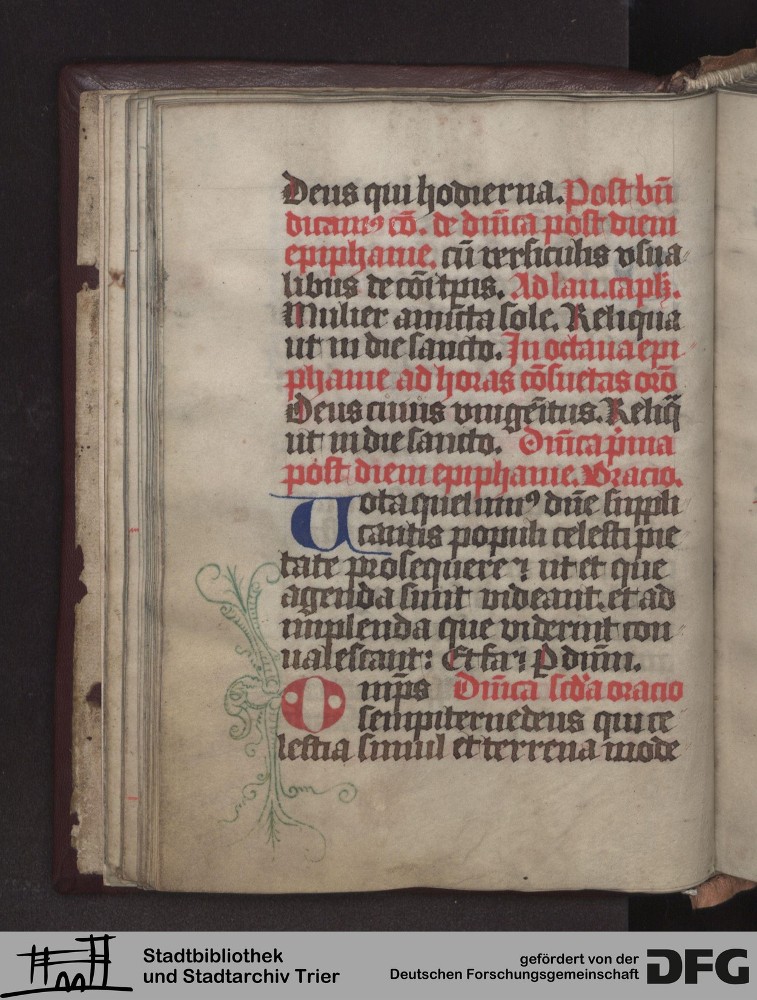 Deus qui hodierna. Post bn̄
dicamꝯ co͞. de dn̄ica post diem
epiphanie. cū versiculis vsua
libus de co͞itp̄is. Ad lau. caplꝫ.
Mulier amicta sole. Reliqua
ut in die sancto. In octaua epi
phanie ad horas co͞suetas oro͞
Deus cuius vnige͞itus. Reliq̄
ut in die sancto. Dn̄ica p̄ma
post diem epiphanie. Oracio.
Uota quesumꝯ dn̄e suppli
cantis populi celesti pie
tate prosequere ⁊ ut et que
agenda sunt videant. et ad
implenda que viderint con
ualescant: Et fa⁊ P dn̄m.
Omp̄s Dn̄ica scd'a oracio
sempiterne deus qui ce
lestia simul et terrena mode
Stadtbibliothek
und Stadtarchiv Trier
gefördert von der
Deutschen Forschungsgemeinschaft
DFG